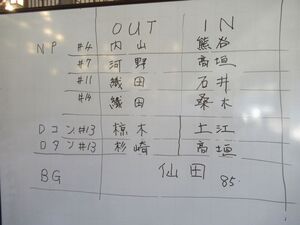 OUT IN
NP #4 内山 熊谷
#7 河野 高垣
#11 織田 石井
#14 織田 桑木
Dコン#13 椋木 土江
Dタン#13 杉崎 高垣
BG 仙田 85.